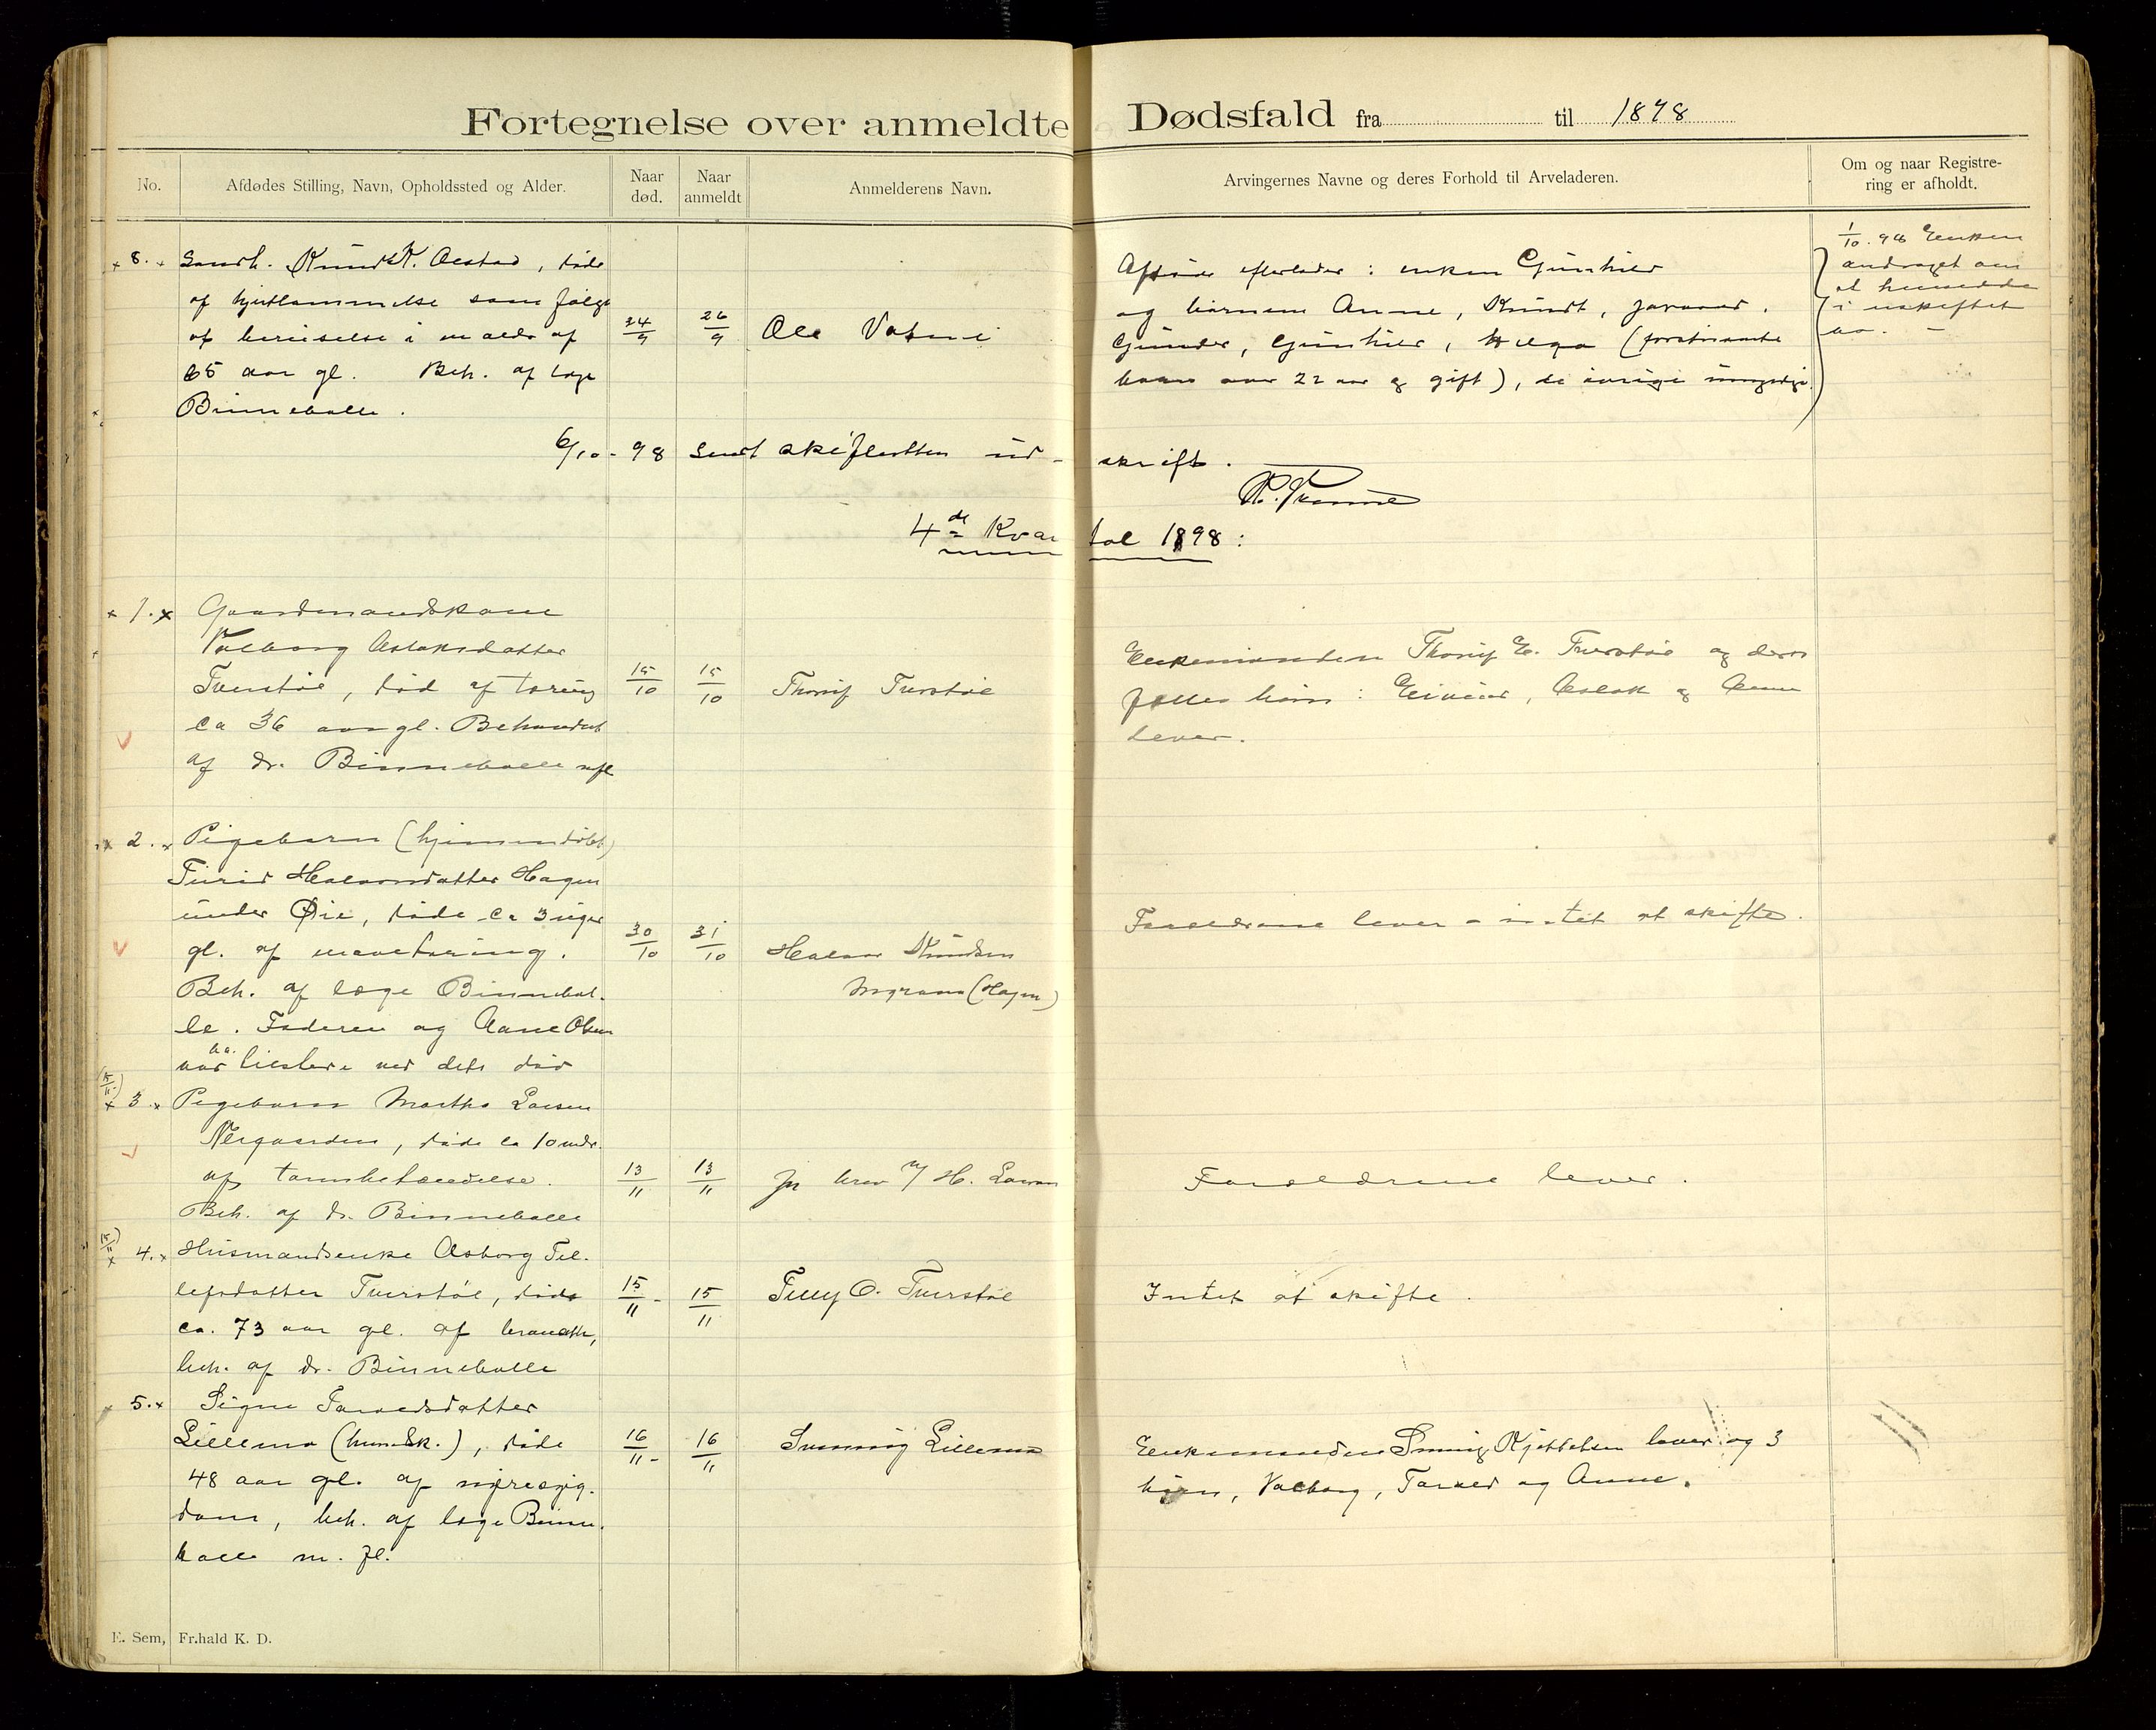 Fortegnelse over anmeldte Dødsfald fra til 1898
No.
Afdødes Stilling, Navn, Opholdssted og Alder.
Naar død.
Naar anmeldt
Anmelderens Navn.
Arvingernes Navne og deres Forhold til Arveladeren.
Om og naar Registre-
ring er afholdt.
8. Gaardm. Knud K. Aastad, døde
af hjertelammelse som følge
af beruselse i en alder af
65 aar gl. Beh. af læge
Binneballe.
24/9
26/9
Ole
Afdøde efterlader: enken Gunhild
og børnene Anne, Knudt,
Gunder, Gunhild, Helga (førstnævnte
barn over 22 aar og gift), de øvrige umyndige
1/10. 98 Enken
andraget om
at hensidde
i uskiftet
bo. -
6/10 - 98 sendt skifteretten ud-skrift.
4de Kvartal 1898:
1. Gaardmandskone
Valborg Aslaksdatter
Tverstøl, død af tæring
ca 36 aar gl. Behandlet
af dr. Binneballe mfl
15/10
15/10
Tverstøl
Enkemanden E. Tverstøl og deres
fælles børn: Eivind, Aslak og Anne
lever.
2. Pigebarn (hjemmedøbt)
Turid Halvorsdatter Hagen
under Øie, døde ca 3 uger
gl. af mavetæring.
Beh. af læge Binnebal-
le. Faderen og Aane Olsen
var tilstede ved dets død
30/10
31/10
Halvor Knudsen
(Hagen)
Forældrene lever - intet at skifte.
(15/11)
3. Pigebarn Martha Larsen
Nergaarden, døde ca 10 mdr.
af tarmbetændelse.
Beh. af dr. Binneballe
13/11
13/11
brev H. Larsen
Forældrene lever.
(15/11)
4. Husmandsenke Asborg Tel-
lefsdatter Tverstøl, døde
ca. 73 aar gl. af
beh. af dr. Binneballe
15/11 -
15/11
O. Tverstøl
Intet at skifte.
5. Signe Tarvedsdatter
Lillemo (husmdsk.), døde
48 aar gl. af nyresyg-
dom, beh. af læge Binne-
balle m. fl.
16/11 -
16/11
Lillemo
Enkemanden Kjettelsen lever og 3
børn, Valborg, Tarved og Anne.
E. Sem, Fr.hald K. D.